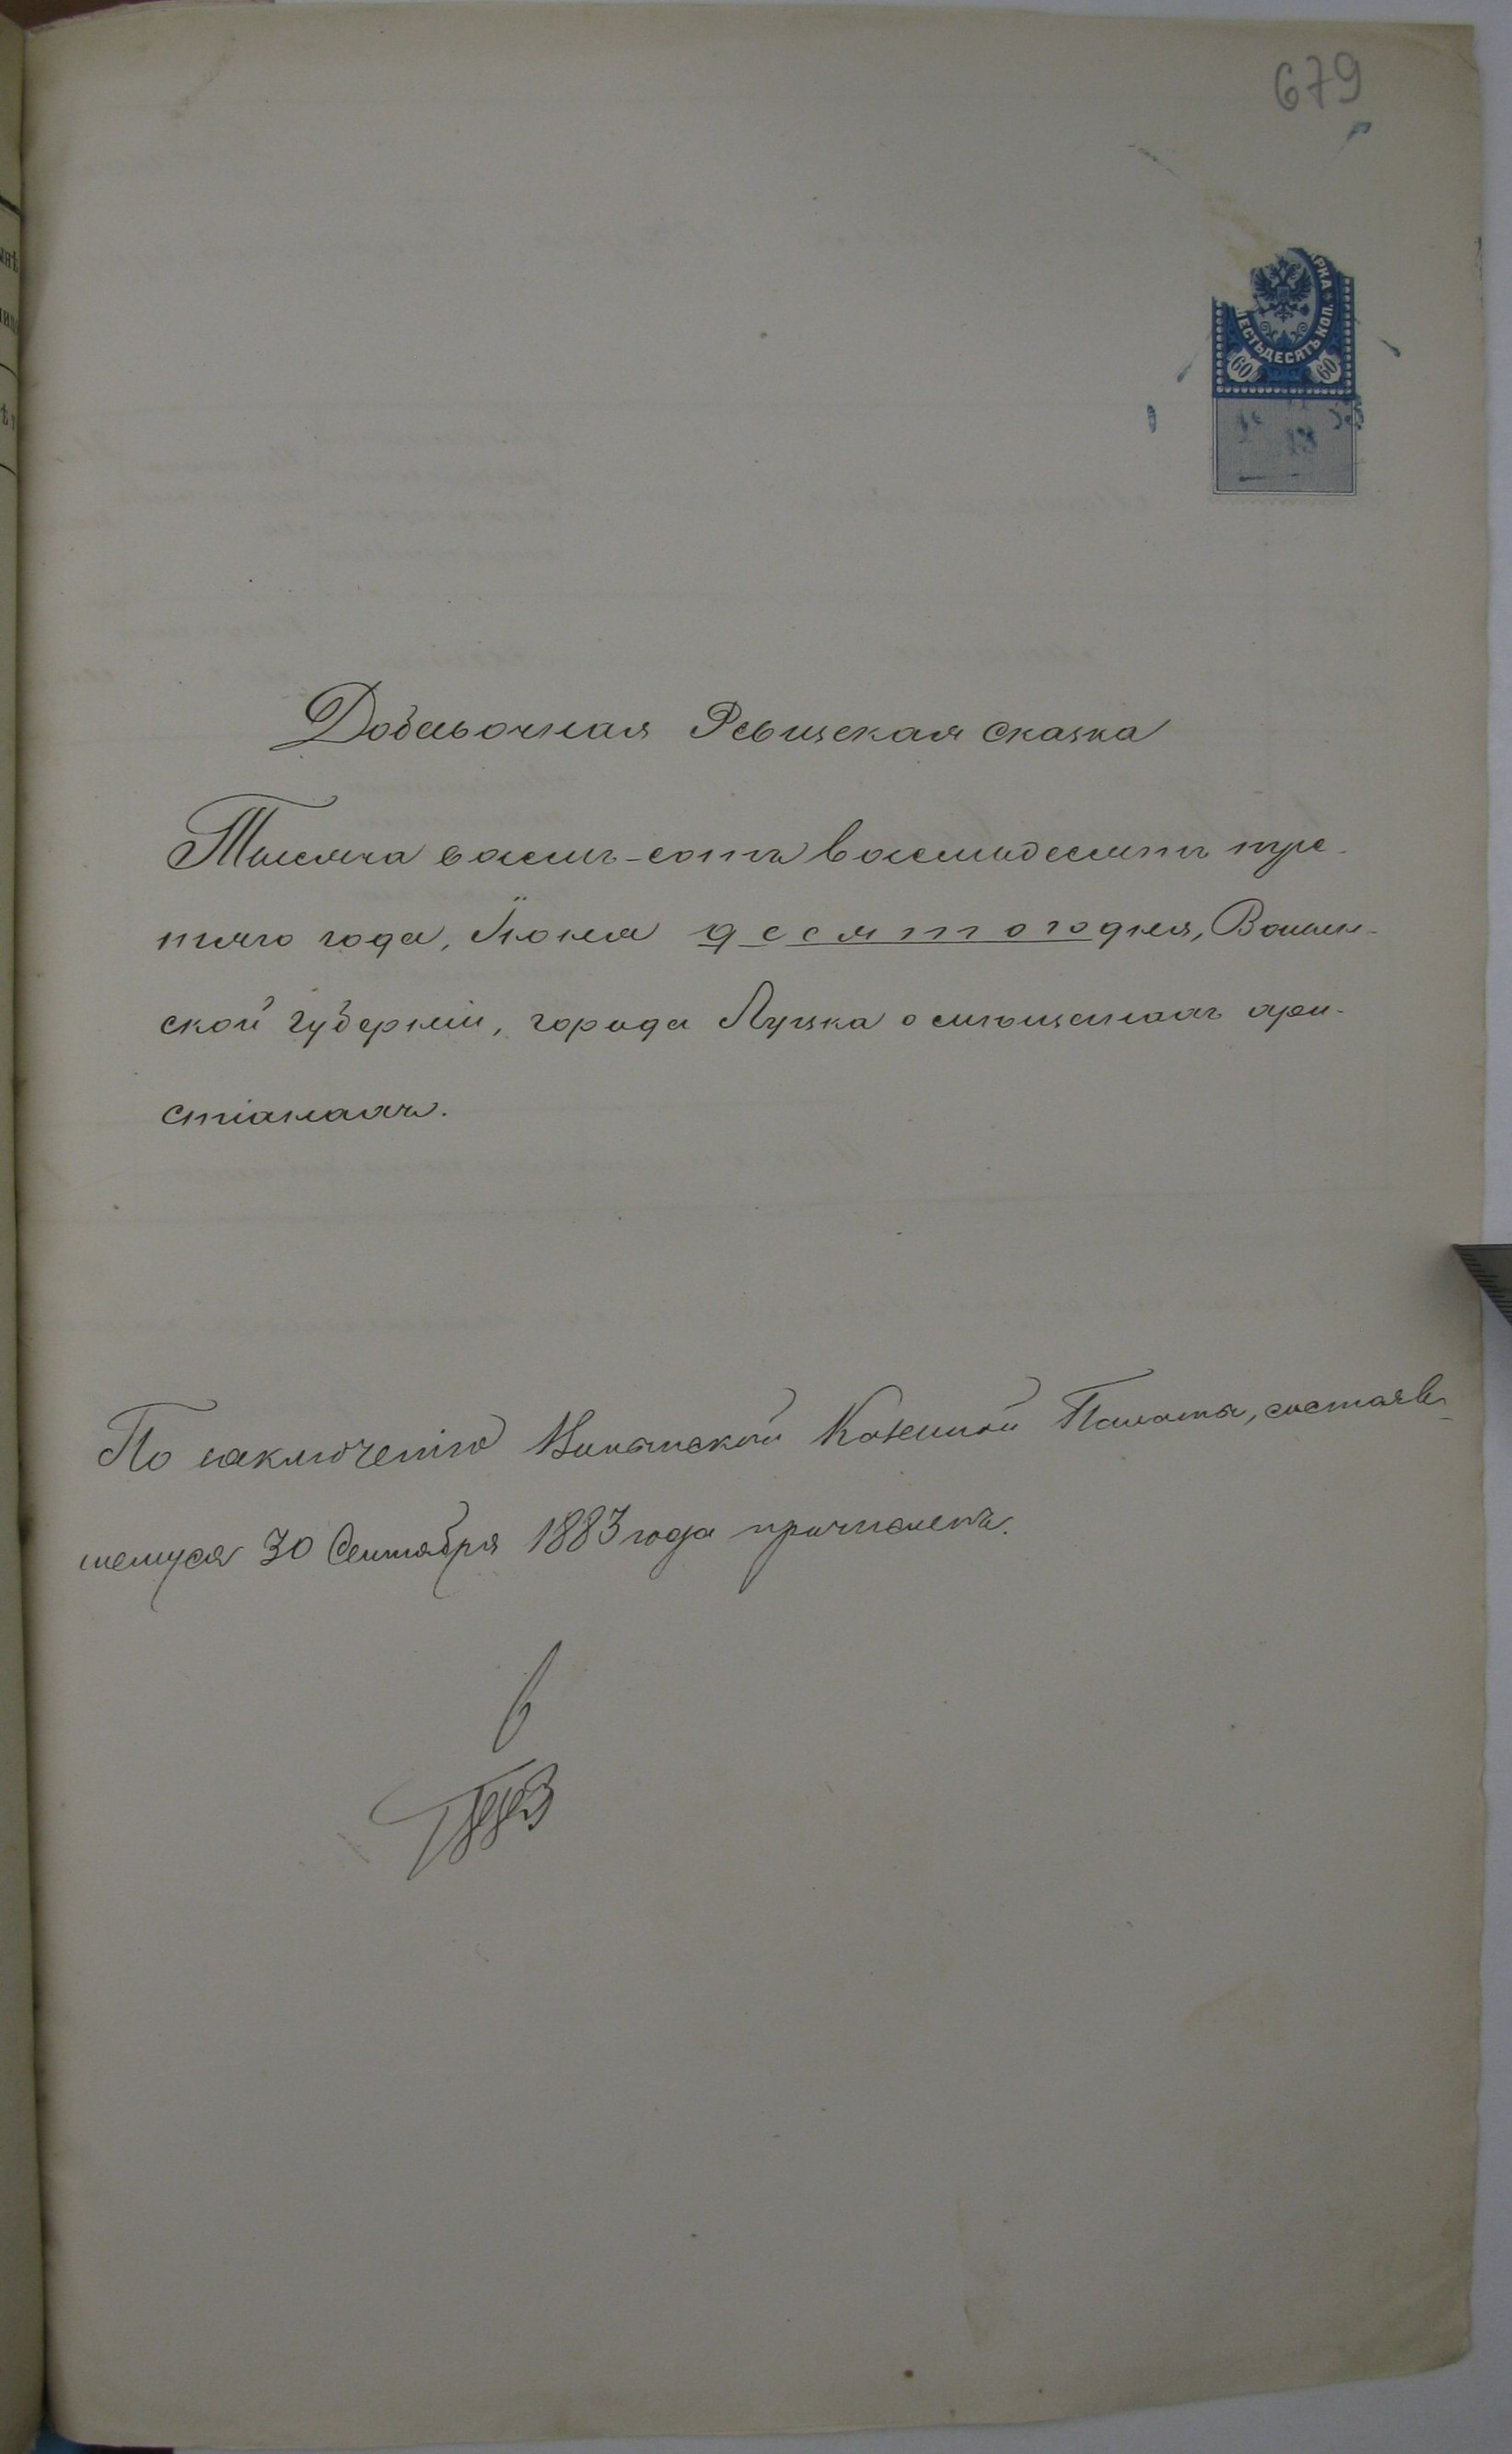 679
РКА
ЕСТЬДЕСЯТЪ КОП.
60 60
Добавочная Ревизская сказка
Тысяча восемь-сотъ восемьдесятъ тре-
тьяго года, Іюня десятого дня, Волын-
ской губерніи, города Луцка о мѣщанахъ хри-
стіанахъ.
По заключенію Волынской Казенной Палаты, состояв-
шемуся 30 Сентября 1883 года причисленъ.